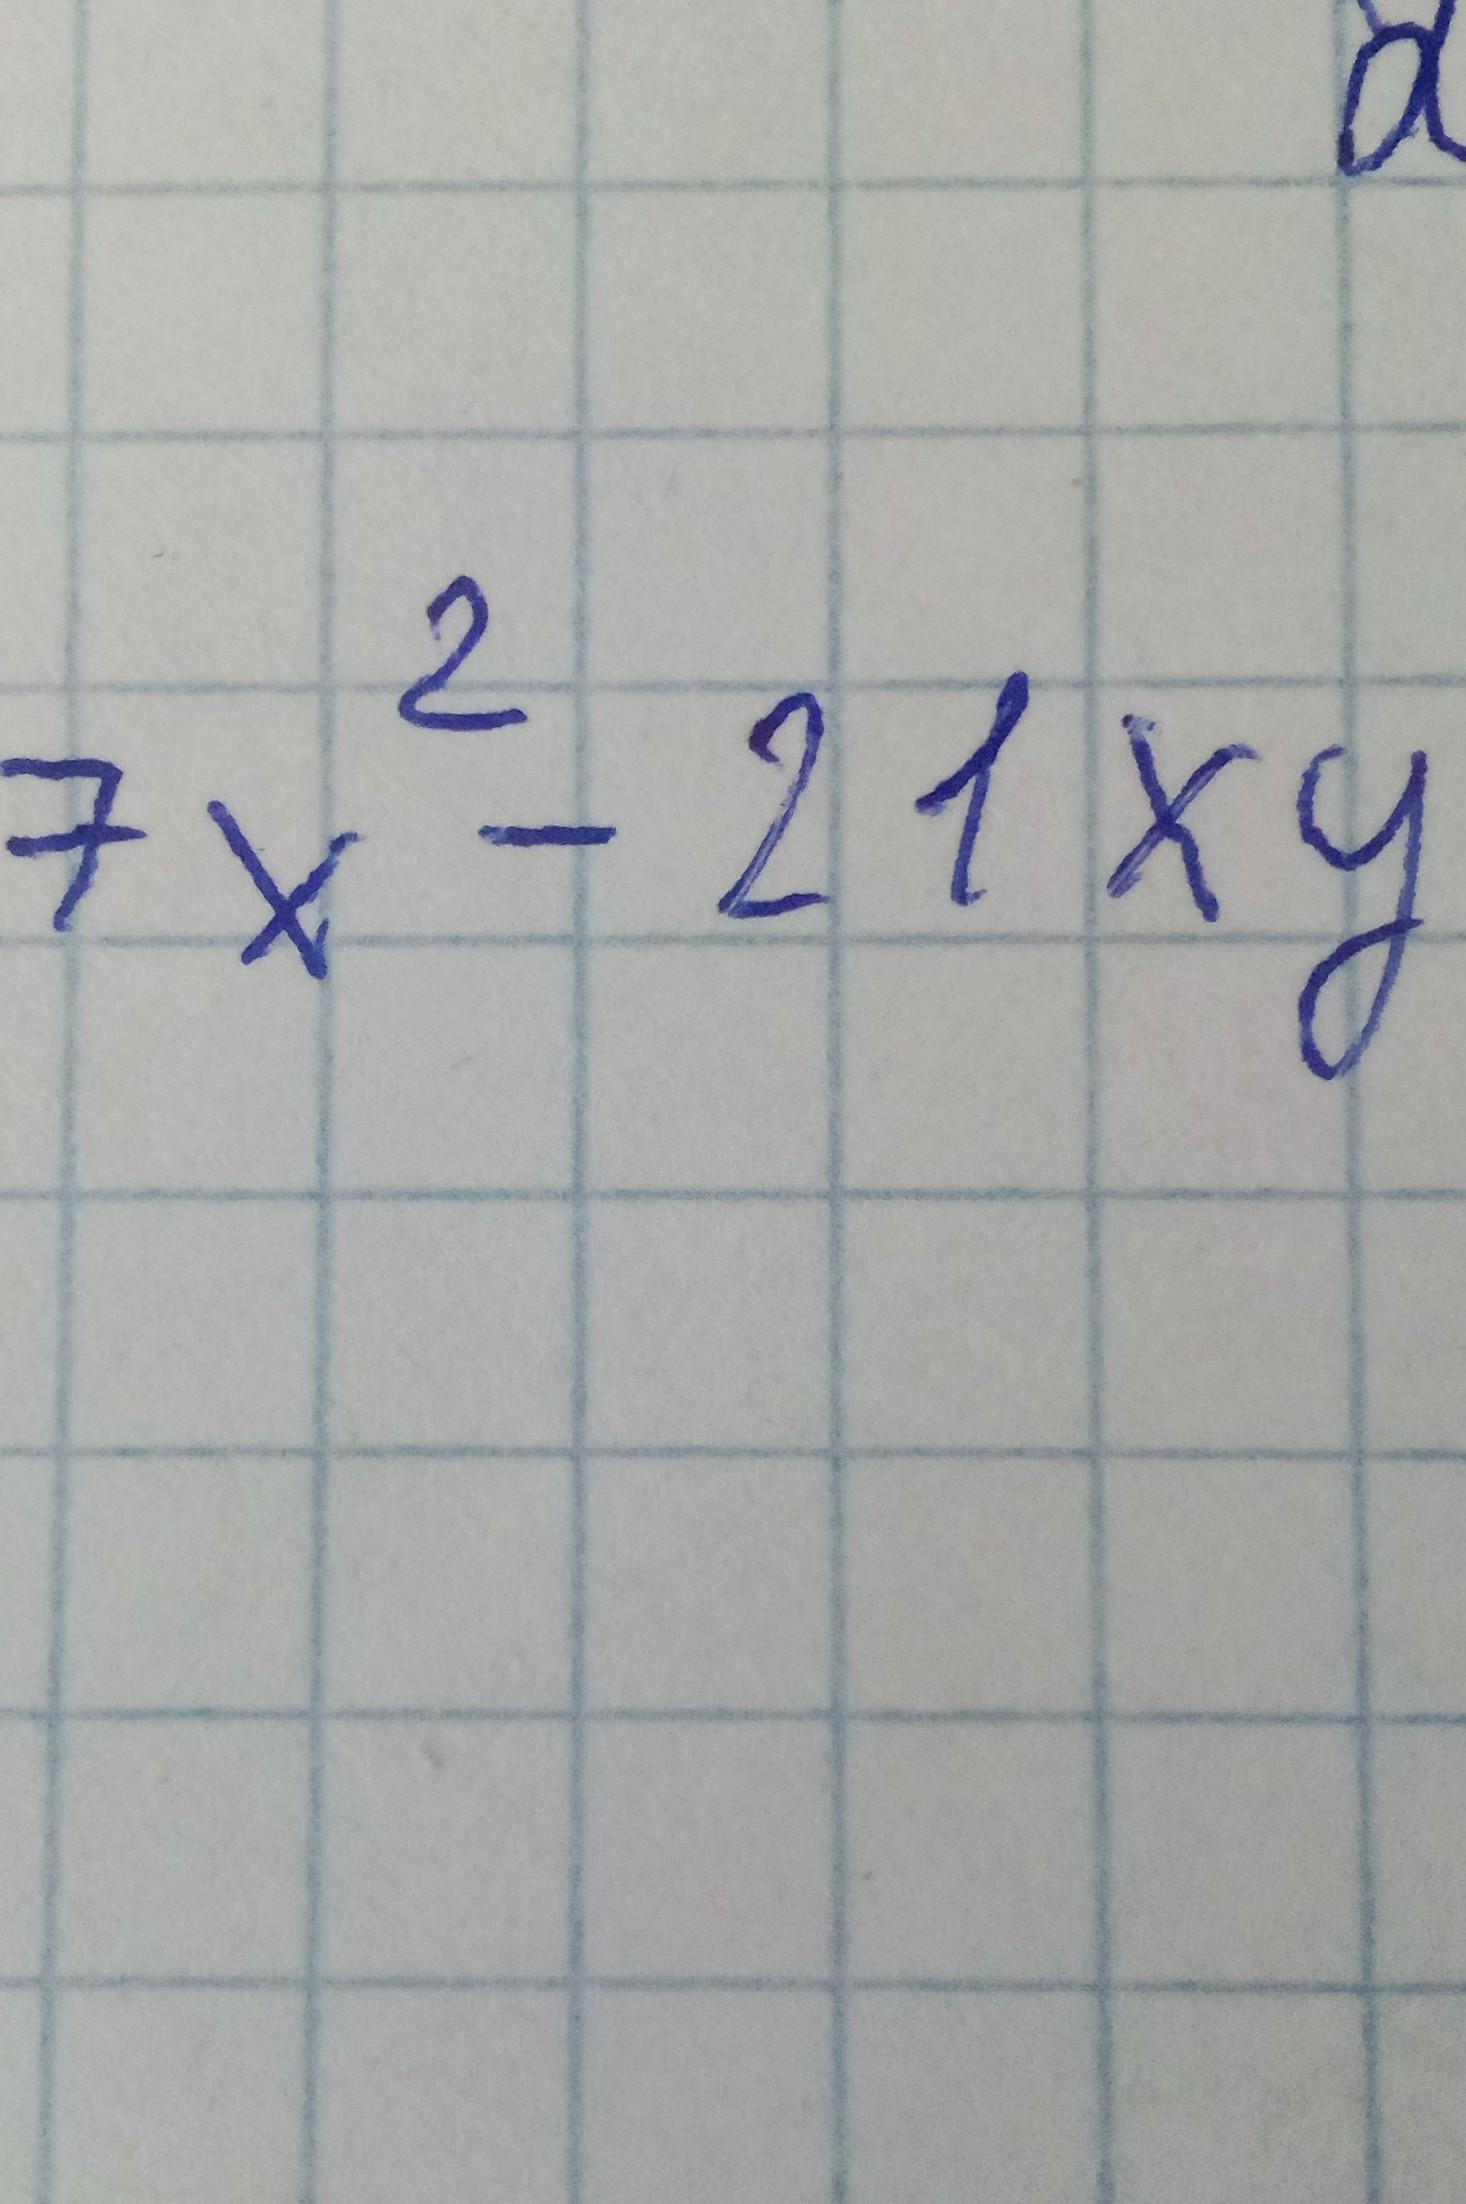 7x² - 21xy